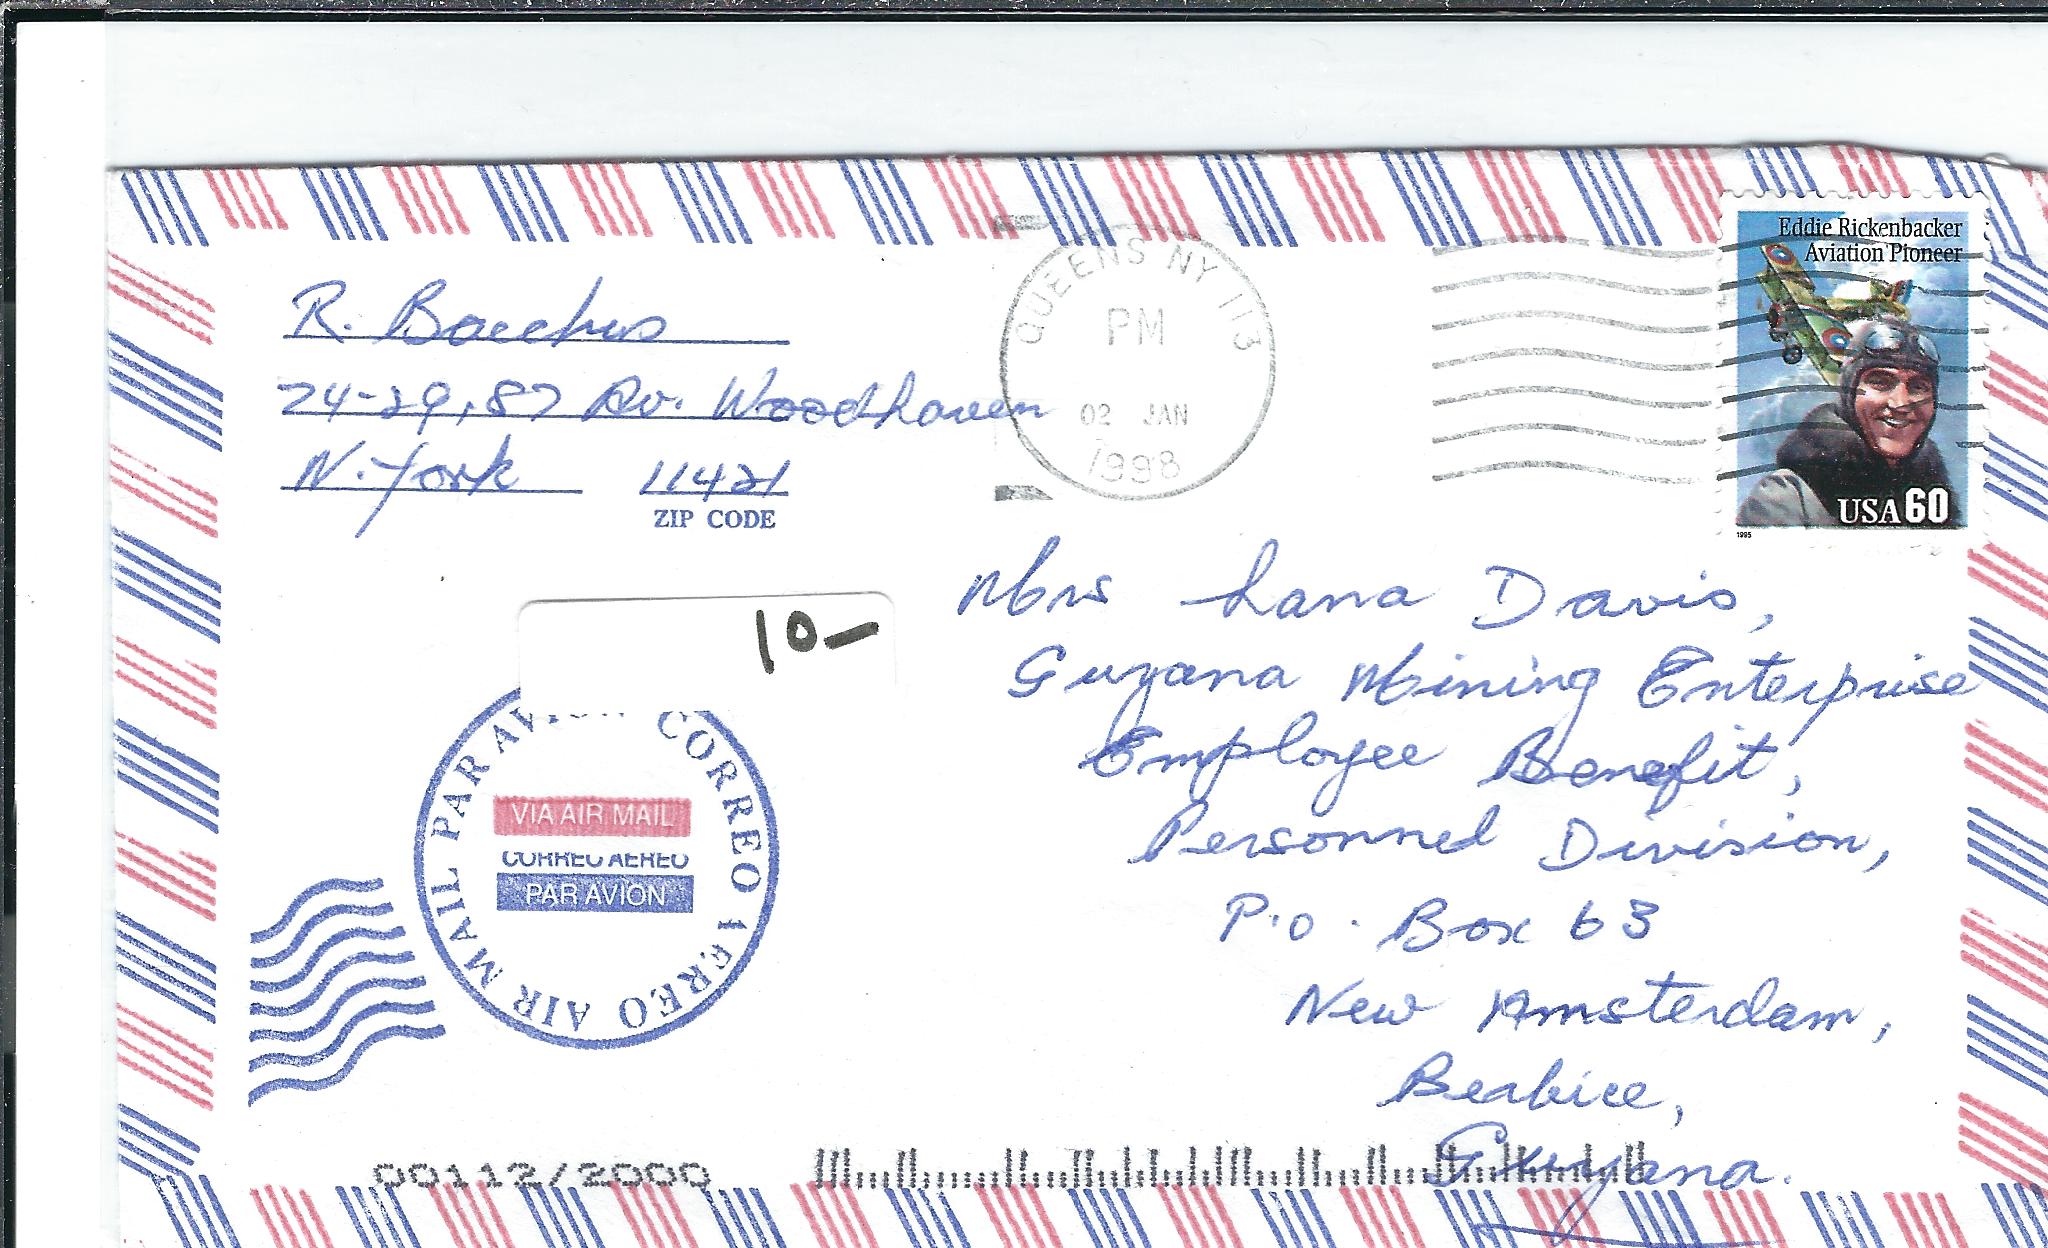 R. Bacchus
74-29, 87 Av. Woodhaven
N. York 11421
ZIP CODE
QUEENS NY 113
PM
02 JAN
1998
Eddie Rickenbacker
Aviation Pioneer
USA 60
1995
10-
Mrs Lana Davis,
Guyana Mining Enterprise
Employee Benefit,
Personnel Division,
P.O. Box 63
New Amsterdam,
Berbice,
Guyana.
AIR MAIL PAR AVION CORREO AEREO
VIA AIR MAIL
CORREO AEREO
PAR AVION
00112/2000